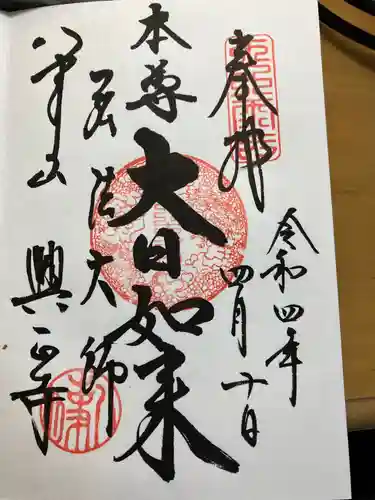 奉拝
令和四年
四月十日
本尊
大日如来
弘法大師
八事山
興正寺